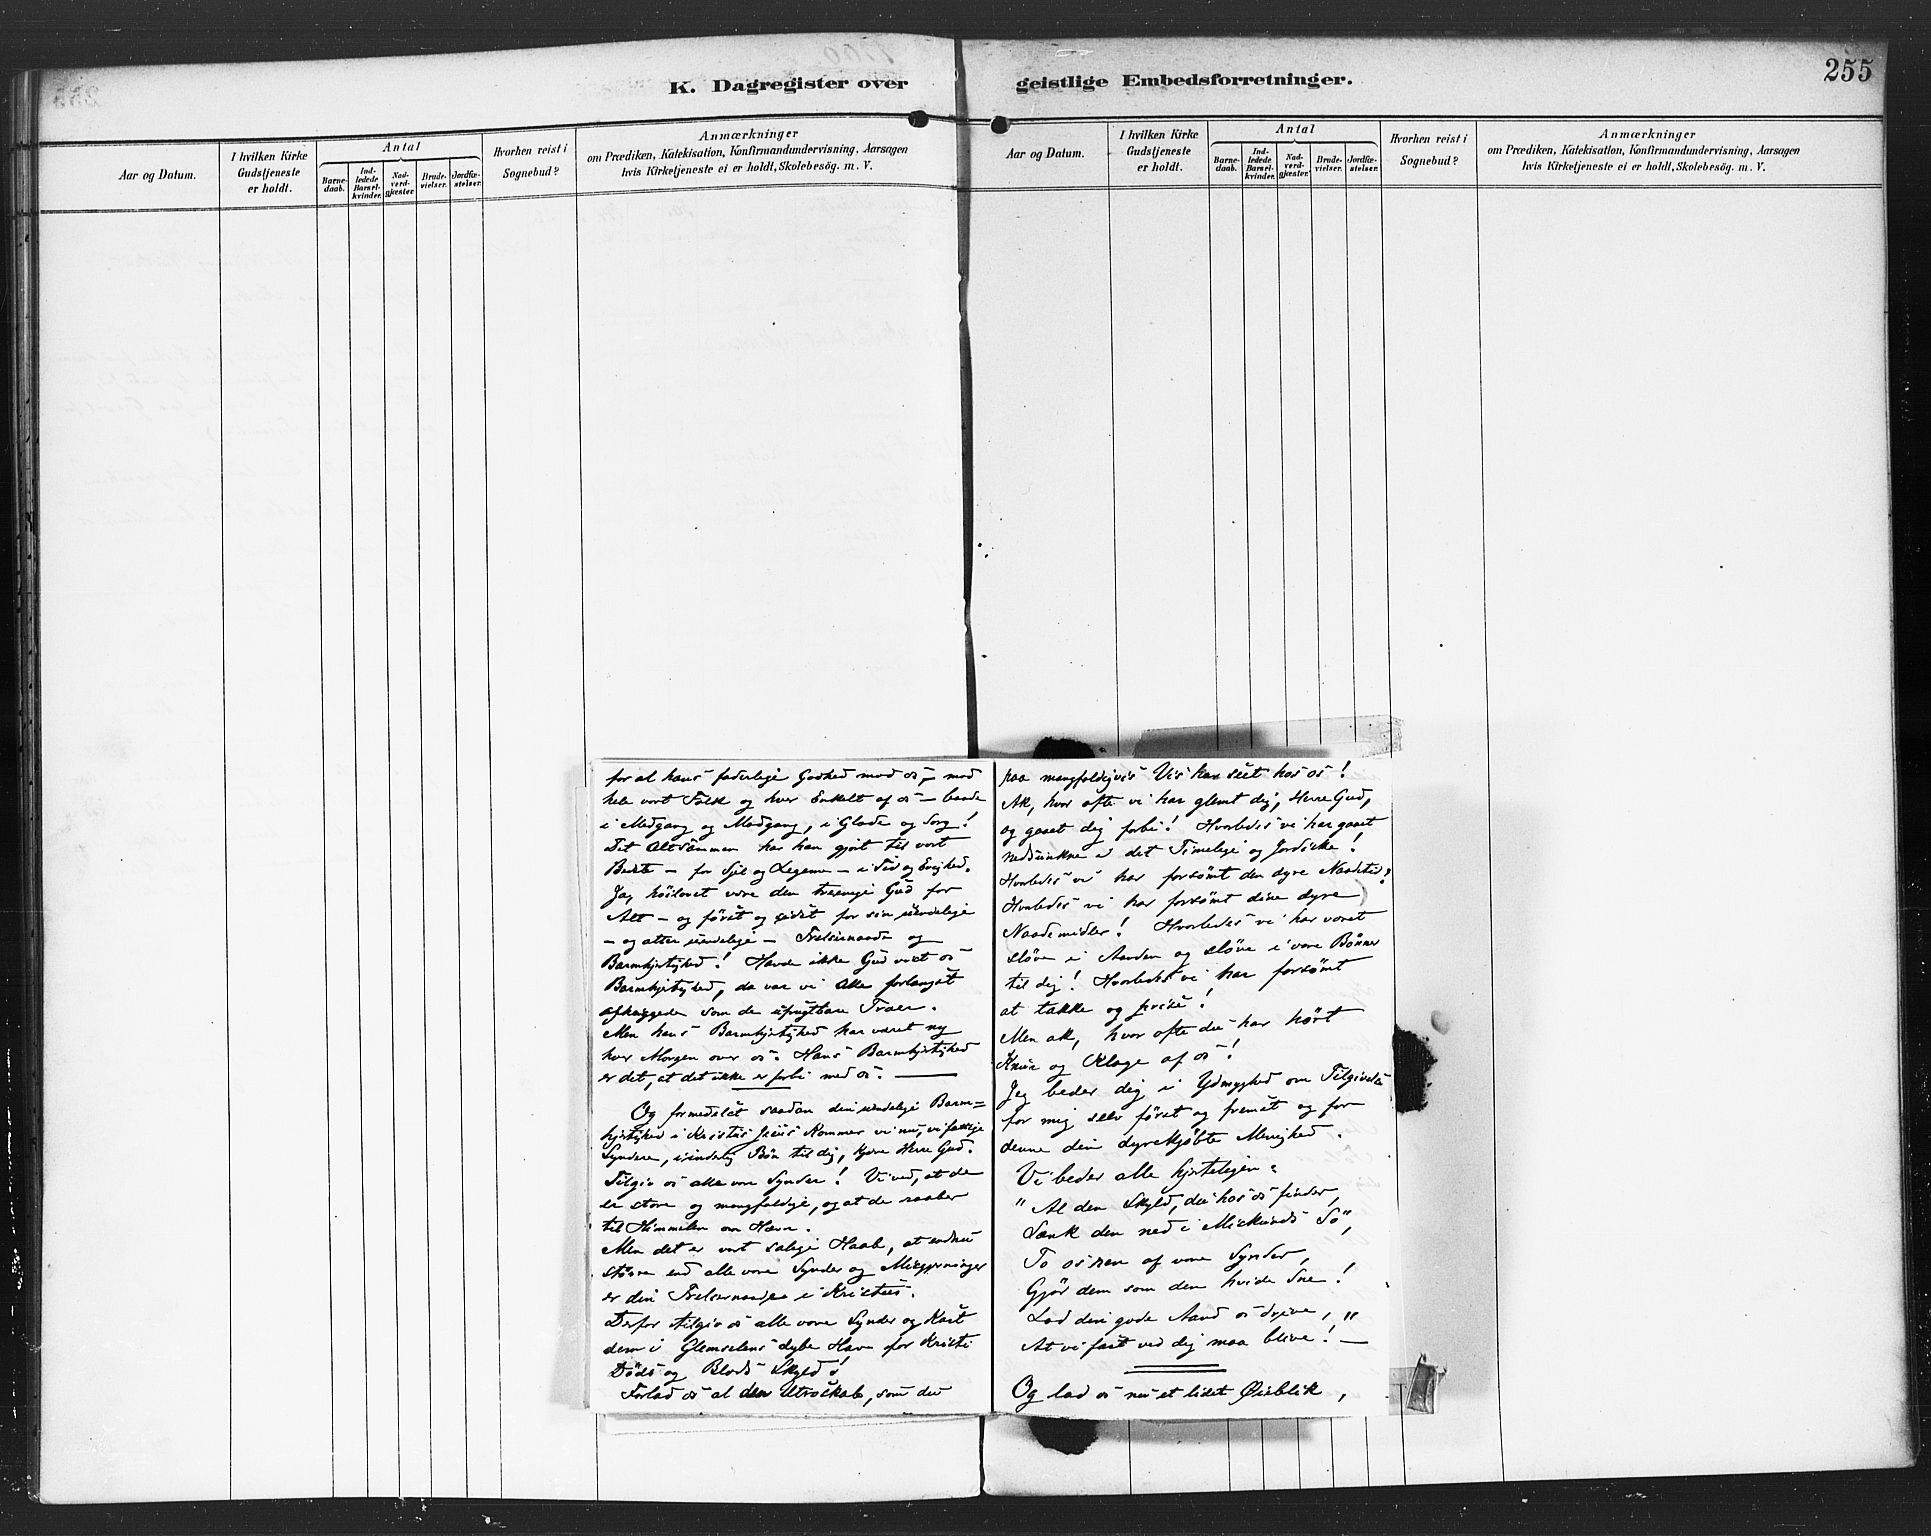 K. Dagregister over geistlige Embedsforretninger.
255
Aar og Datum.
I hvilken Kirke
Gudstjeneste
er holdt.
Antal
Barne-
daab.
Ind-
ledede
Barsel-
kvinder.
Nad-
verd-
gjæster.
Brude-
vielser.
Jordfæ-
stelser.
Hvorhen reist i
Sognebud?
Anmærkninger
om Prædiken, Katekisation, Konfirmandundervisning, Aarsagen
hvis Kirketjeneste ei er holdt, Skolebesög. m. V.
Aar og Datum.
I hvilken Kirke
Gudstjeneste
er holdt.
Antal
Barne-
daab.
Ind-
ledede
Barsel-
kvinder.
Nad-
verd-
gjæster.
Brude-
vielser.
Jordfæ-
stelser.
Hvorhen reist i
Sognebud?
Anmærkninger
om Prædiken, Katekisation, Konfirmandundervisning, Aarsagen
hvis Kirketjeneste ei er holdt, Skolebesög. m. V.
for al hans faderlige Godhed mod os, – mod
hele vort Folk og hver Enkelt af os – baade
i Medgang og Modgang, i Glæde og Sorg!
Det Altsammen har han gjort til vort
Bedste – for Sjel og Legeme – i Tid og Evighed.
Ja, høilovet være den treenige Gud for
Alt – og først og sidst for sin uendelige
– og atter uendelige – Frelsernaade og
Barmhjertighed! Havde ikke Gud vist os
Barmhjertighed, da var vi Alle forlængst
afhuggede som de ufrugtbare Træer.
Men hans Barmhjertighed har været ny
hver Morgen over os. Hans Barmhjertighed
er det, at det ikke er forbi med os. —
Og formedelst saadan din uendelige Barm=
hjertighed i Kristus Jesus kommer vi nu, vi fattige
Syndere, inderlig Bøn til dig, kjære Herre Gud.
Tilgiv os alle vore Synder! Vi ved, at de
er store og mangfoldige, og at de raaber
til Himmelen om Hævn.
Men det er vort salige Haab, at endnu
større end alle vore Synder og Misgjerninger
er din Frelsernaade i Kristus.
Derfor tilgiv os alle vore Synder og Kast
dem i Glemselens dybe Hav for Kristi
Døds og Blods Skyld!
Forlad os al den Utroskab, som du
paa mangfoldigvis Vis har seet hos os!
Ak, hvor ofte vi har glemt dig, Herre Gud,
og gaaet dig forbi! Hvorledes vi har gaaet
nedsunkne i det Timelige og Jordiske!
Hvorledes vi har forsømt den dyre Naadetid?
Hvorledes vi har forsømt dine dyre
Naademidler! Hvorledes vi har været
sløve i Aanden og sløve i vore Bønner
til dig! Hvorledes vi har forsømt
at takke og prise!
Men ak, hvor ofte du har hørt
Knur og Klage af os!
Jeg beder dig i Ydmyghed om Tilgivelse
for mig selv først og fremst og for
denne din dyrekjøbte Menighed.
Vi beder alle hjerteligen:
"Al den Skyld, du hos os finder,
Sænk den ned i Miskunds Sø",
To os ren af vore Synder,
Gjør dem som den hvide Sne!
Lad din gode Aand os drive, "
At vi fast ved dig maa blive! —
Og lad os nu et lidet Øieblik,